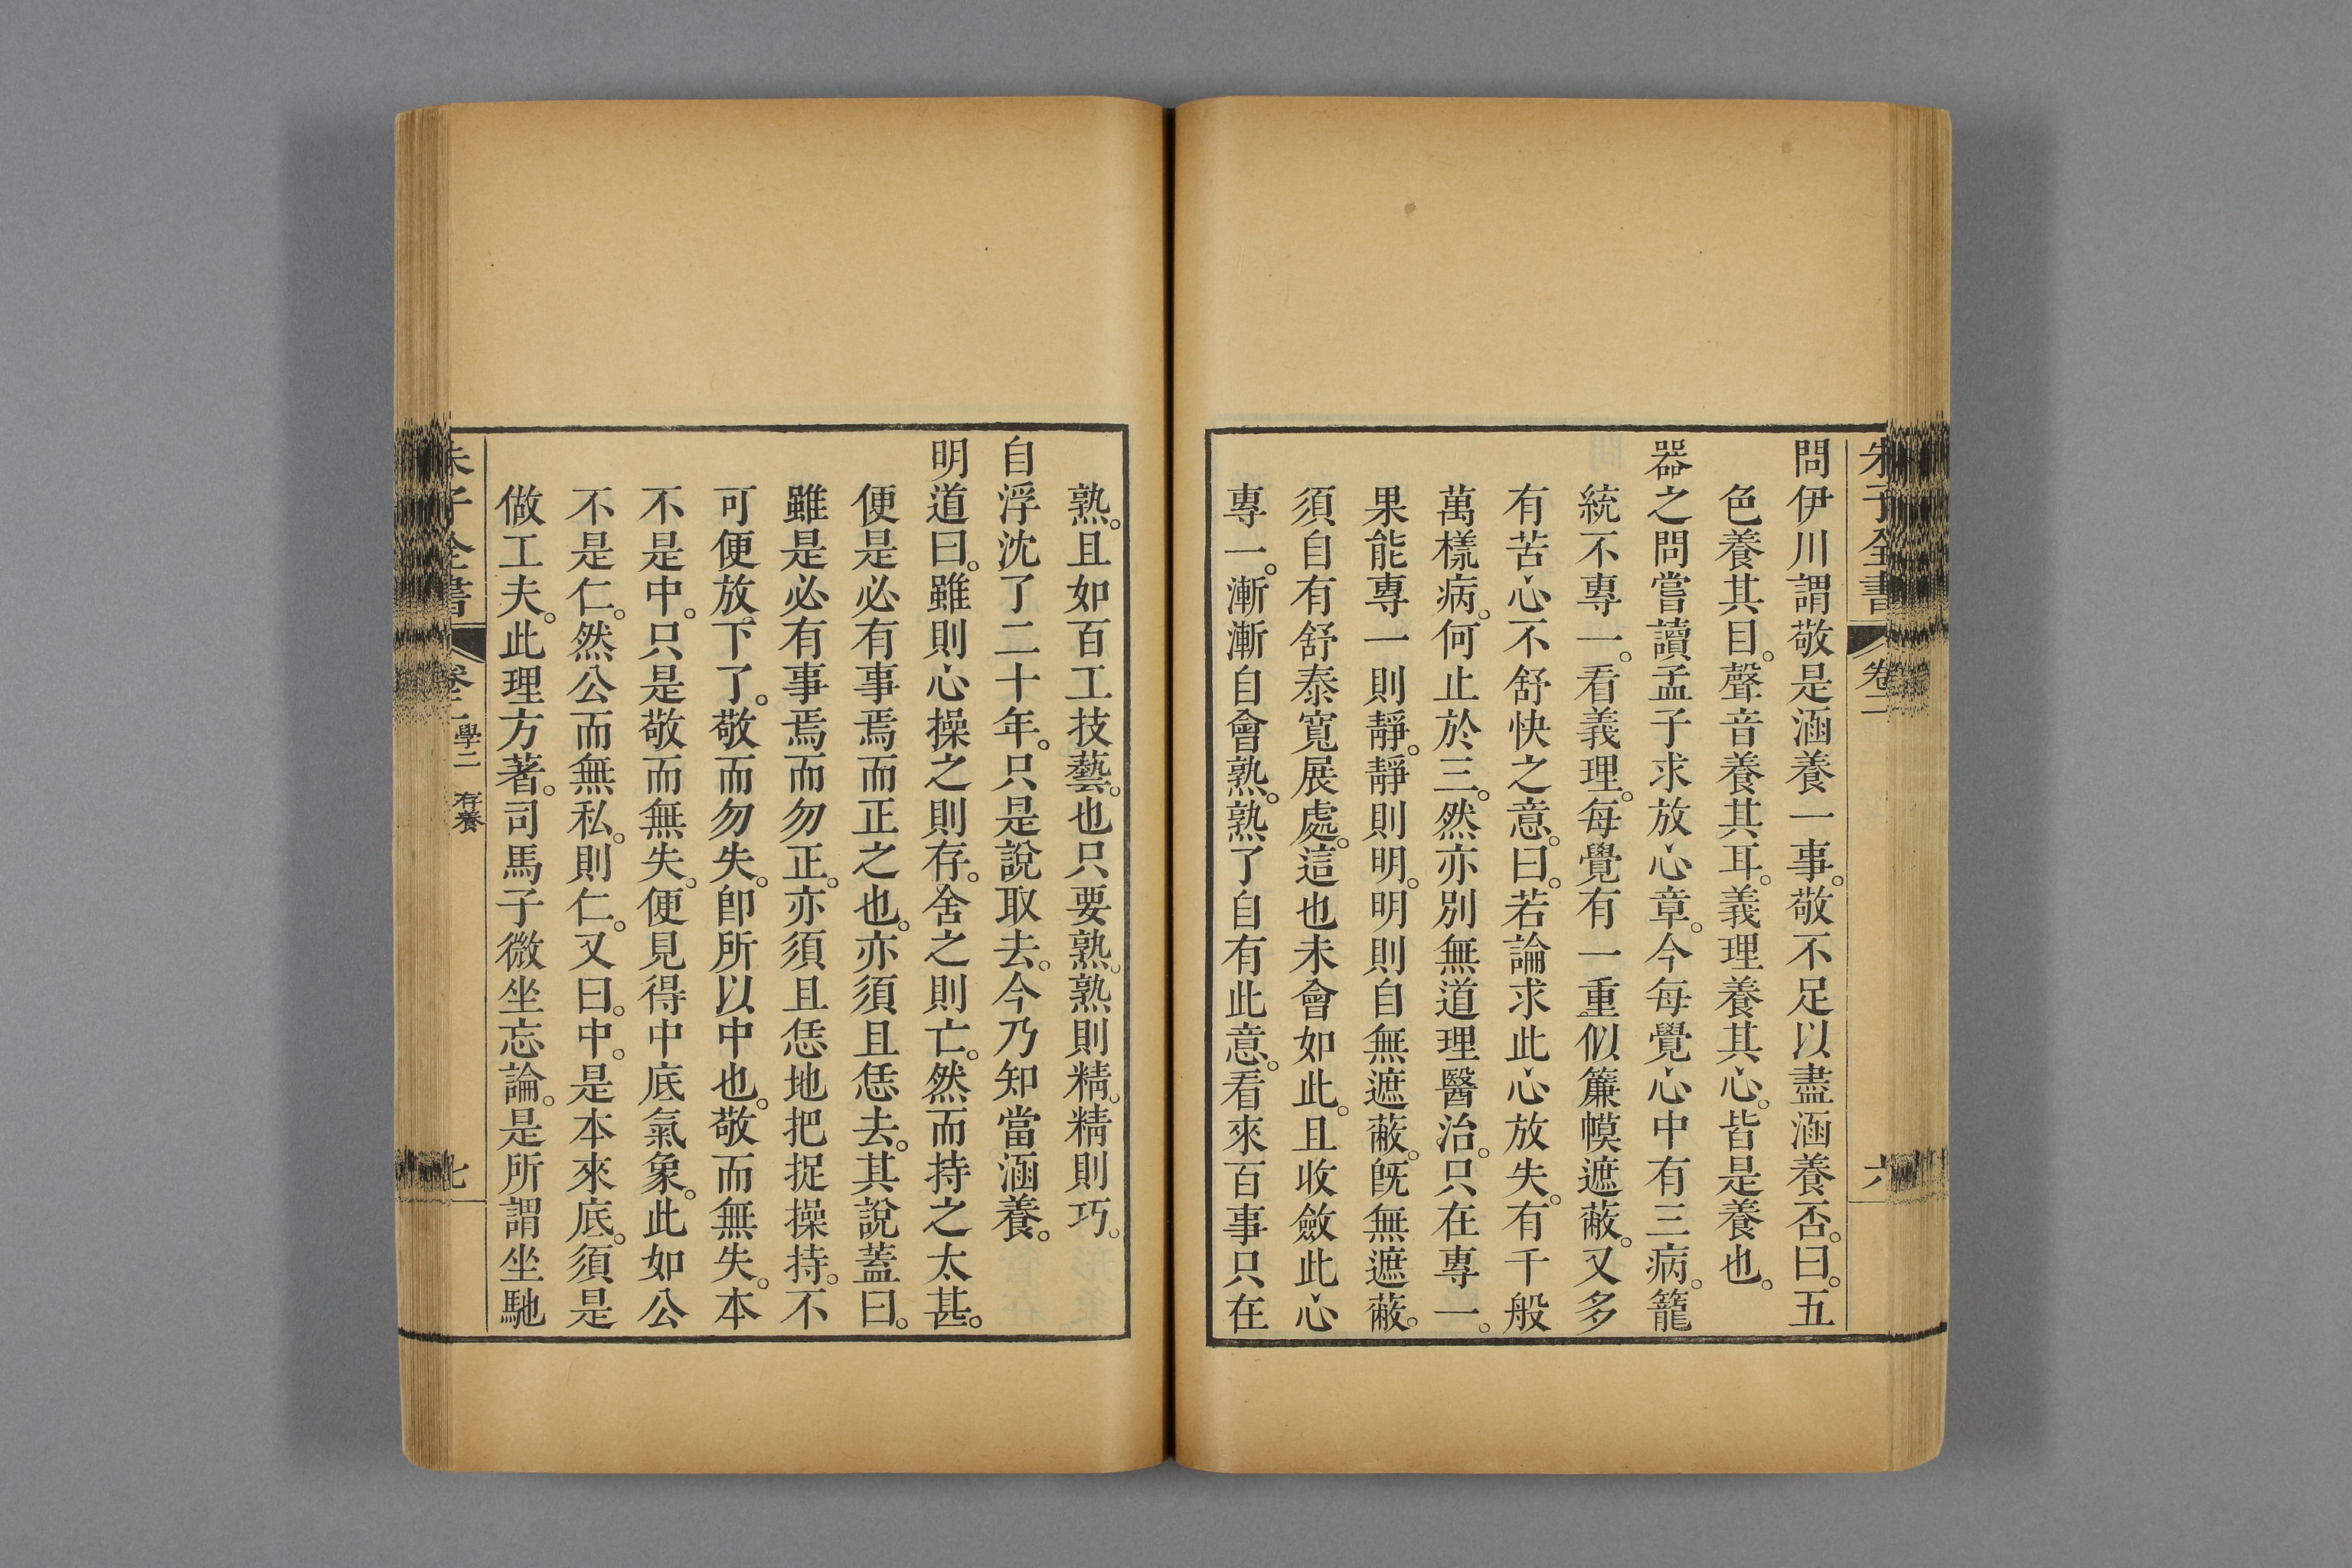 朱子全書 卷二 六
問伊川謂敬是涵養一事。敬不足以盡涵養否。曰。五
色養其目。聲音養其耳。義理養其心。皆是養也。
器之問嘗讀孟子求放心章。今每覺心中有三病。籠
統不專一。看義理。每覺有一重似簾幙遮蔽。又多
有苦心不舒快之意。曰。若論求此心放失。有千般
萬樣病。何止於三。然亦別無道理醫治。只在專一。
果能專一則靜。靜則明。明則自無遮蔽。旣無遮蔽。
須自有舒泰寬展處。這也未會如此。且收斂此心
專一。漸漸自會熟。熟了自有此意。看來百事只在
熟。且如百工技藝。也只要熟。熟則精。精則巧。
自浮沈了二十年。只是說取去。今乃知當涵養。
明道曰。雖則心操之則存。舍之則亡。然而持之太甚。
便是必有事焉而正之也。亦須且恁去。其說蓋曰。
雖是必有事焉而勿正。亦須且恁地把捉操持。不
可便放下了。敬而勿失。卽所以中也。敬而無失。本
不是中。只是敬而無失。便見得中底氣象。此如公
不是仁。然公而無私。則仁。又曰。中。是本來底。須是
做工夫。此理方著。司馬子微坐忘論。是所謂坐馳
朱子全書 卷二 學二 存養 七